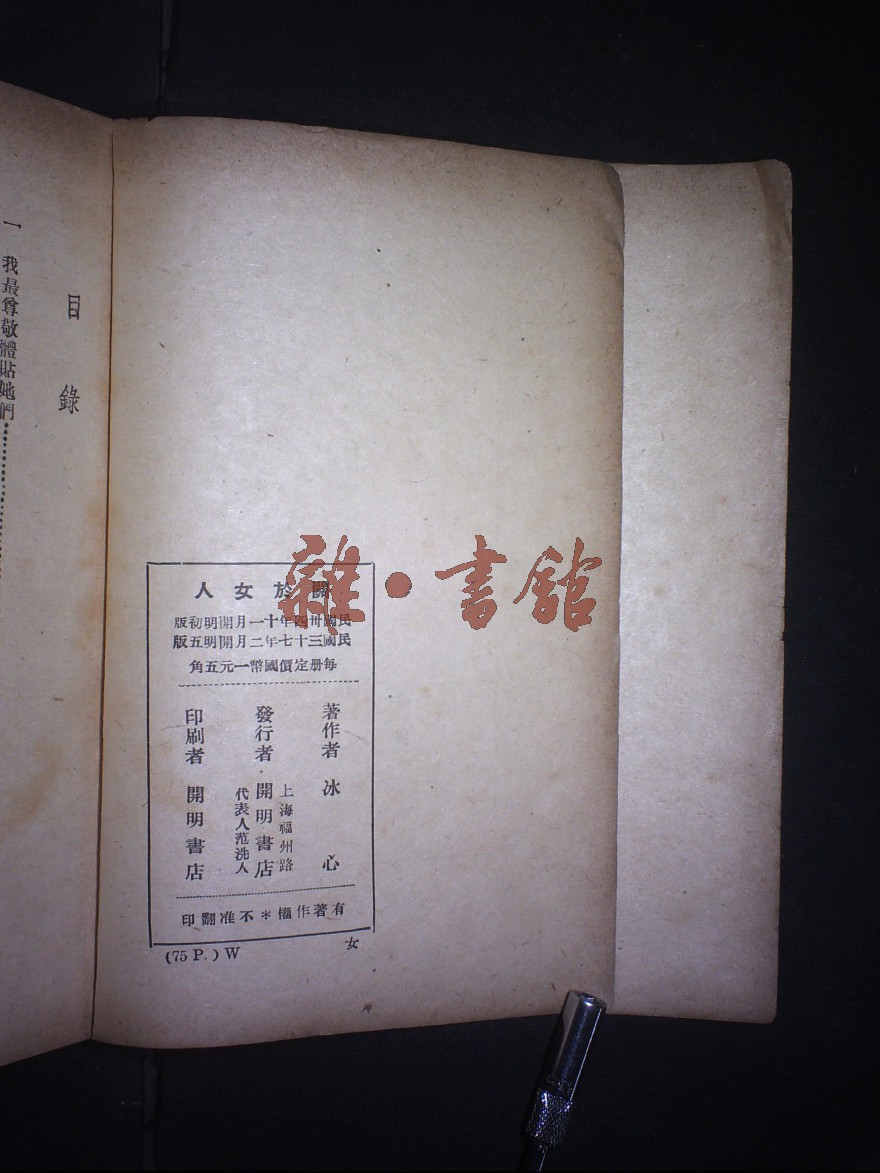 雜·書舘
關於女人
民國卅四年十一月開明初版
民國三十七年二月開明五版
每册定價國幣一元五角
著作者 冰心
發行者 上海福州路 開明書店 代表人范洗人
印刷者 開明書店
有著作權＊不准翻印
(75 P.) W
女
目錄
一 我最尊敬體貼她們